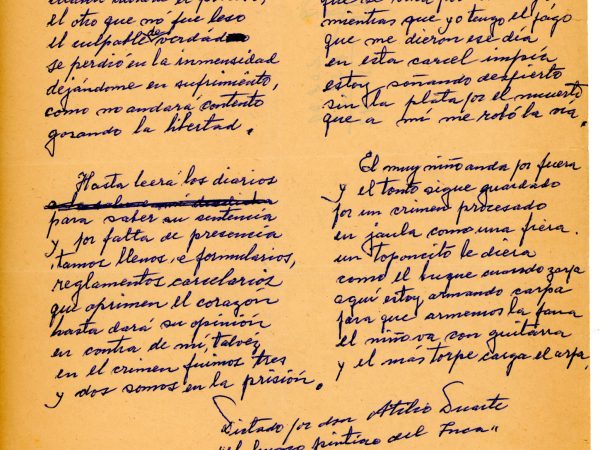 el otro que no fue leso
el culpable de verdad
se perdió en la inmensidad
dejándome en sufrimiento,
como no andará contento
gosando la libertad.
Hasta leerá los diarios
para saber su sentencia
y por falta de presencia
'tamos llenos, e formularios,
reglamentos carcelarios
que oprimen el corazón
hasta dará su opinión
en contra de mi, talvez
en el crimen fuimos tres
y dos somos en la prisión.
mientras, que yo tengo el pago
que me dieron ese día
en esta carcel impía
estoy soñando despierto
sin la plata por el muerto
que a mí me robó la vía.
El muy niño anda por fuera
y el tonto sigue guardado
por un crimen procesado
en jaula como una fiera.
un toponcito le diera
como el buque cuando zarpa
aquí estoy, armando carpa
para que armemos la fana
el niño va, con guitarra
y el más torpe carga el arpa,
Dictado por don Atilio Duarte
del Inca"